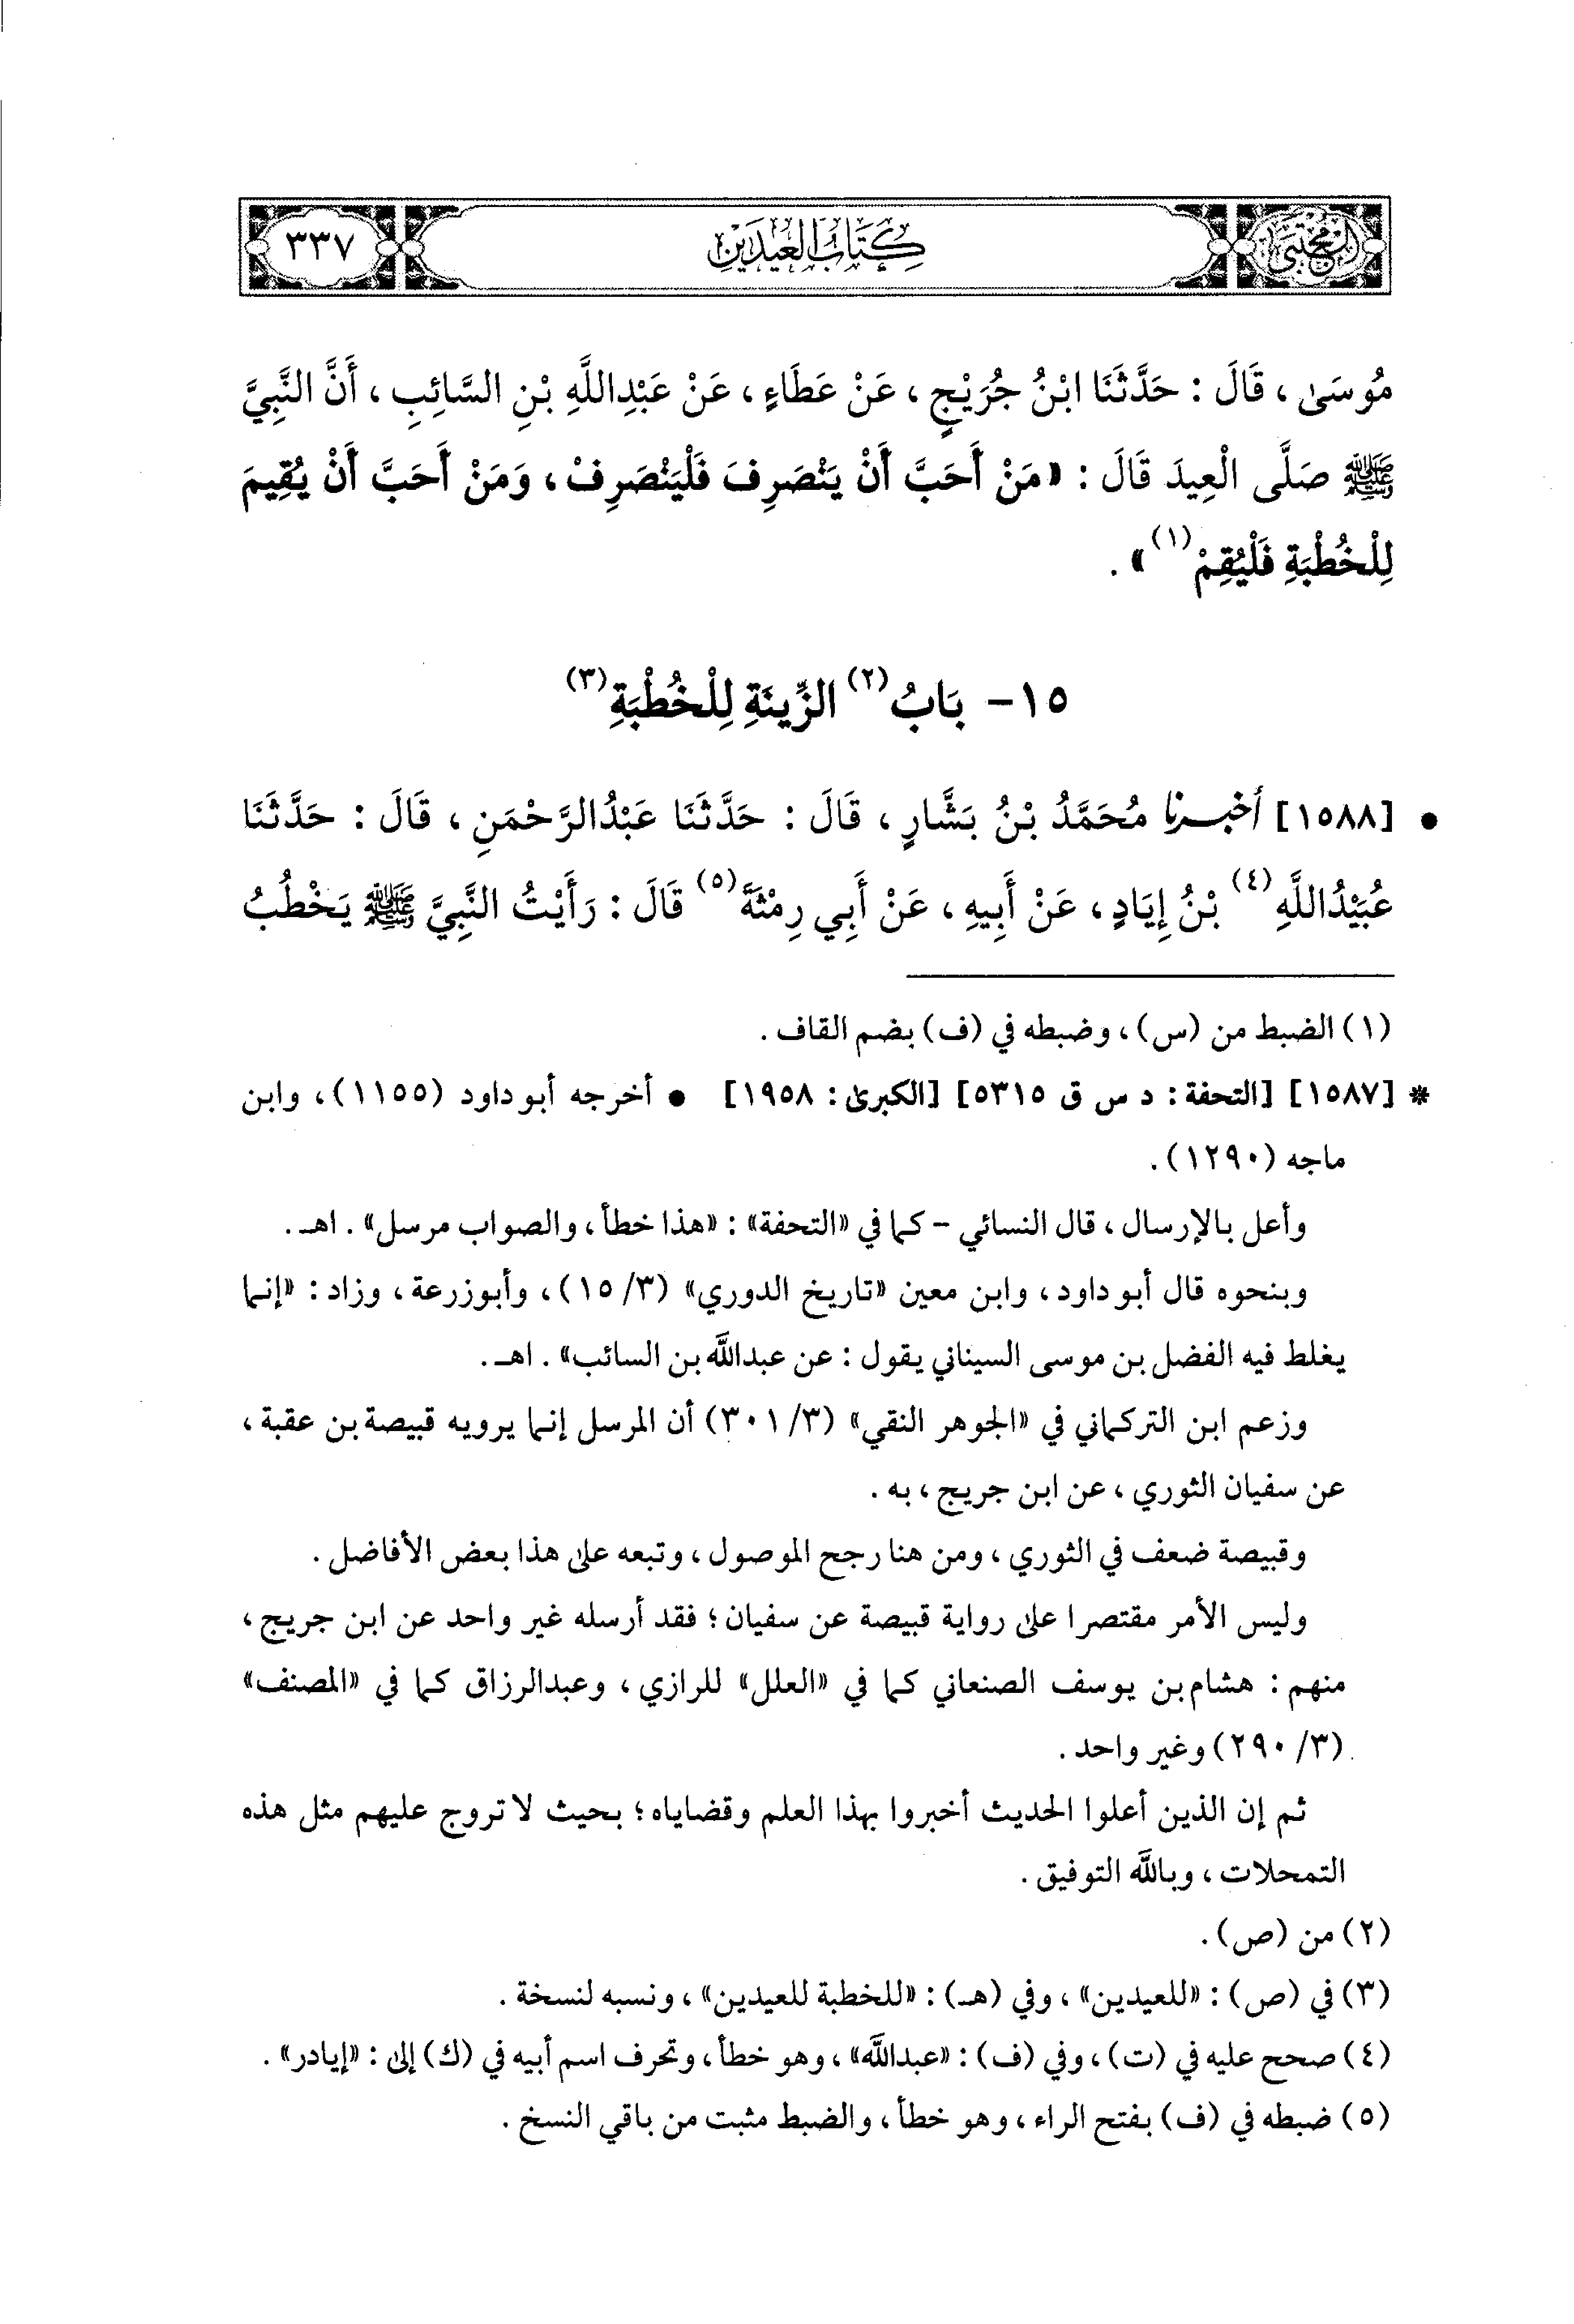 المجتبى كِتَابُ العِيدَيْنِ ٣٣٧
مُوسَىٰ ، قَالَ : حَدَّثَنَا ابْنُ جُرَيْجٍ ، عَنْ عَطَاءٍ ، عَنْ عَبْدِاللَّهِ بْنِ السَّائِبِ ، أَنَّ النَّبِيَّ
ﷺ صَلَّى الْعِيدَ قَالَ : «مَنْ أَحَبَّ أَنْ يَنْصَرِفَ فَلْيَنْصَرِفْ ، وَمَنْ أَحَبَّ أَنْ يُقِيمَ
لِلْخُطْبَةِ فَلْيُقِمْ(١)» .
١٥- بَابُ(٢) الزِّينَةِ لِلْخُطْبَةِ(٣)
• [١٥٨٨] أخبرنا مُحَمَّدُ بْنُ بَشَّارٍ ، قَالَ : حَدَّثَنَا عَبْدُالرَّحْمَنِ ، قَالَ : حَدَّثَنَا
عُبَيْدُاللَّهِ(٤) بْنُ إِيَادٍ ، عَنْ أَبِيهِ ، عَنْ أَبِي رِمْثَةَ(٥) قَالَ : رَأَيْتُ النَّبِيَّ ﷺ يَخْطُبُ
(١) الضبط من (س) ، وضبطه في (ف) بضم القاف .
* [١٥٨٧] [التحفة : د س ق ٥٣١٥] [الكبرىٰ : ١٩٥٨] • أخرجه أبو داود (١١٥٥) ، وابن
ماجه (١٢٩٠) .
وأعل بالإرسال ، قال النسائي - كما في «التحفة» : «هذا خطأ ، والصواب مرسل» . اهـ .
وبنحوه قال أبو داود ، وابن معين «تاريخ الدوري» (٣/ ١٥) ، وأبوزرعة ، وزاد : «إنما
يغلط فيه الفضل بن موسى السيناني يقول : عن عبدالله بن السائب» . اهـ .
وزعم ابن التركماني في «الجوهر النقي» (٣/ ٣٠١) أن المرسل إنما يرويه قبيصة بن عقبة ،
عن سفيان الثوري ، عن ابن جريج ، به .
وقبيصة ضعف في الثوري ، ومن هنا رجح الموصول ، وتبعه علىٰ هذا بعض الأفاضل .
وليس الأمر مقتصرا علىٰ رواية قبيصة عن سفيان ؛ فقد أرسله غير واحد عن ابن جريج ،
منهم : هشام بن يوسف الصنعاني كما في «العلل» للرازي ، وعبدالرزاق كما في «المصنف»
(٣/ ٢٩٠) وغير واحد .
ثم إن الذين أعلوا الحديث أخبروا بهذا العلم وقضاياه ؛ بحيث لا تروج عليهم مثل هذه
التمحلات ، وبالله التوفيق .
(٢) من (ص) .
(٣) في (ص) : «للعيدين» ، وفي (هـ) : «للخطبة للعيدين» ، ونسبه لنسخة .
(٤) صحح عليه في (ت) ، وفي (ف) : «عبدالله» ، وهو خطأ ، وتحرف اسم أبيه في (ك) إلىٰ : «إيادر» .
(٥) ضبطه في (ف) بفتح الراء ، وهو خطأ ، والضبط مثبت من باقي النسخ .